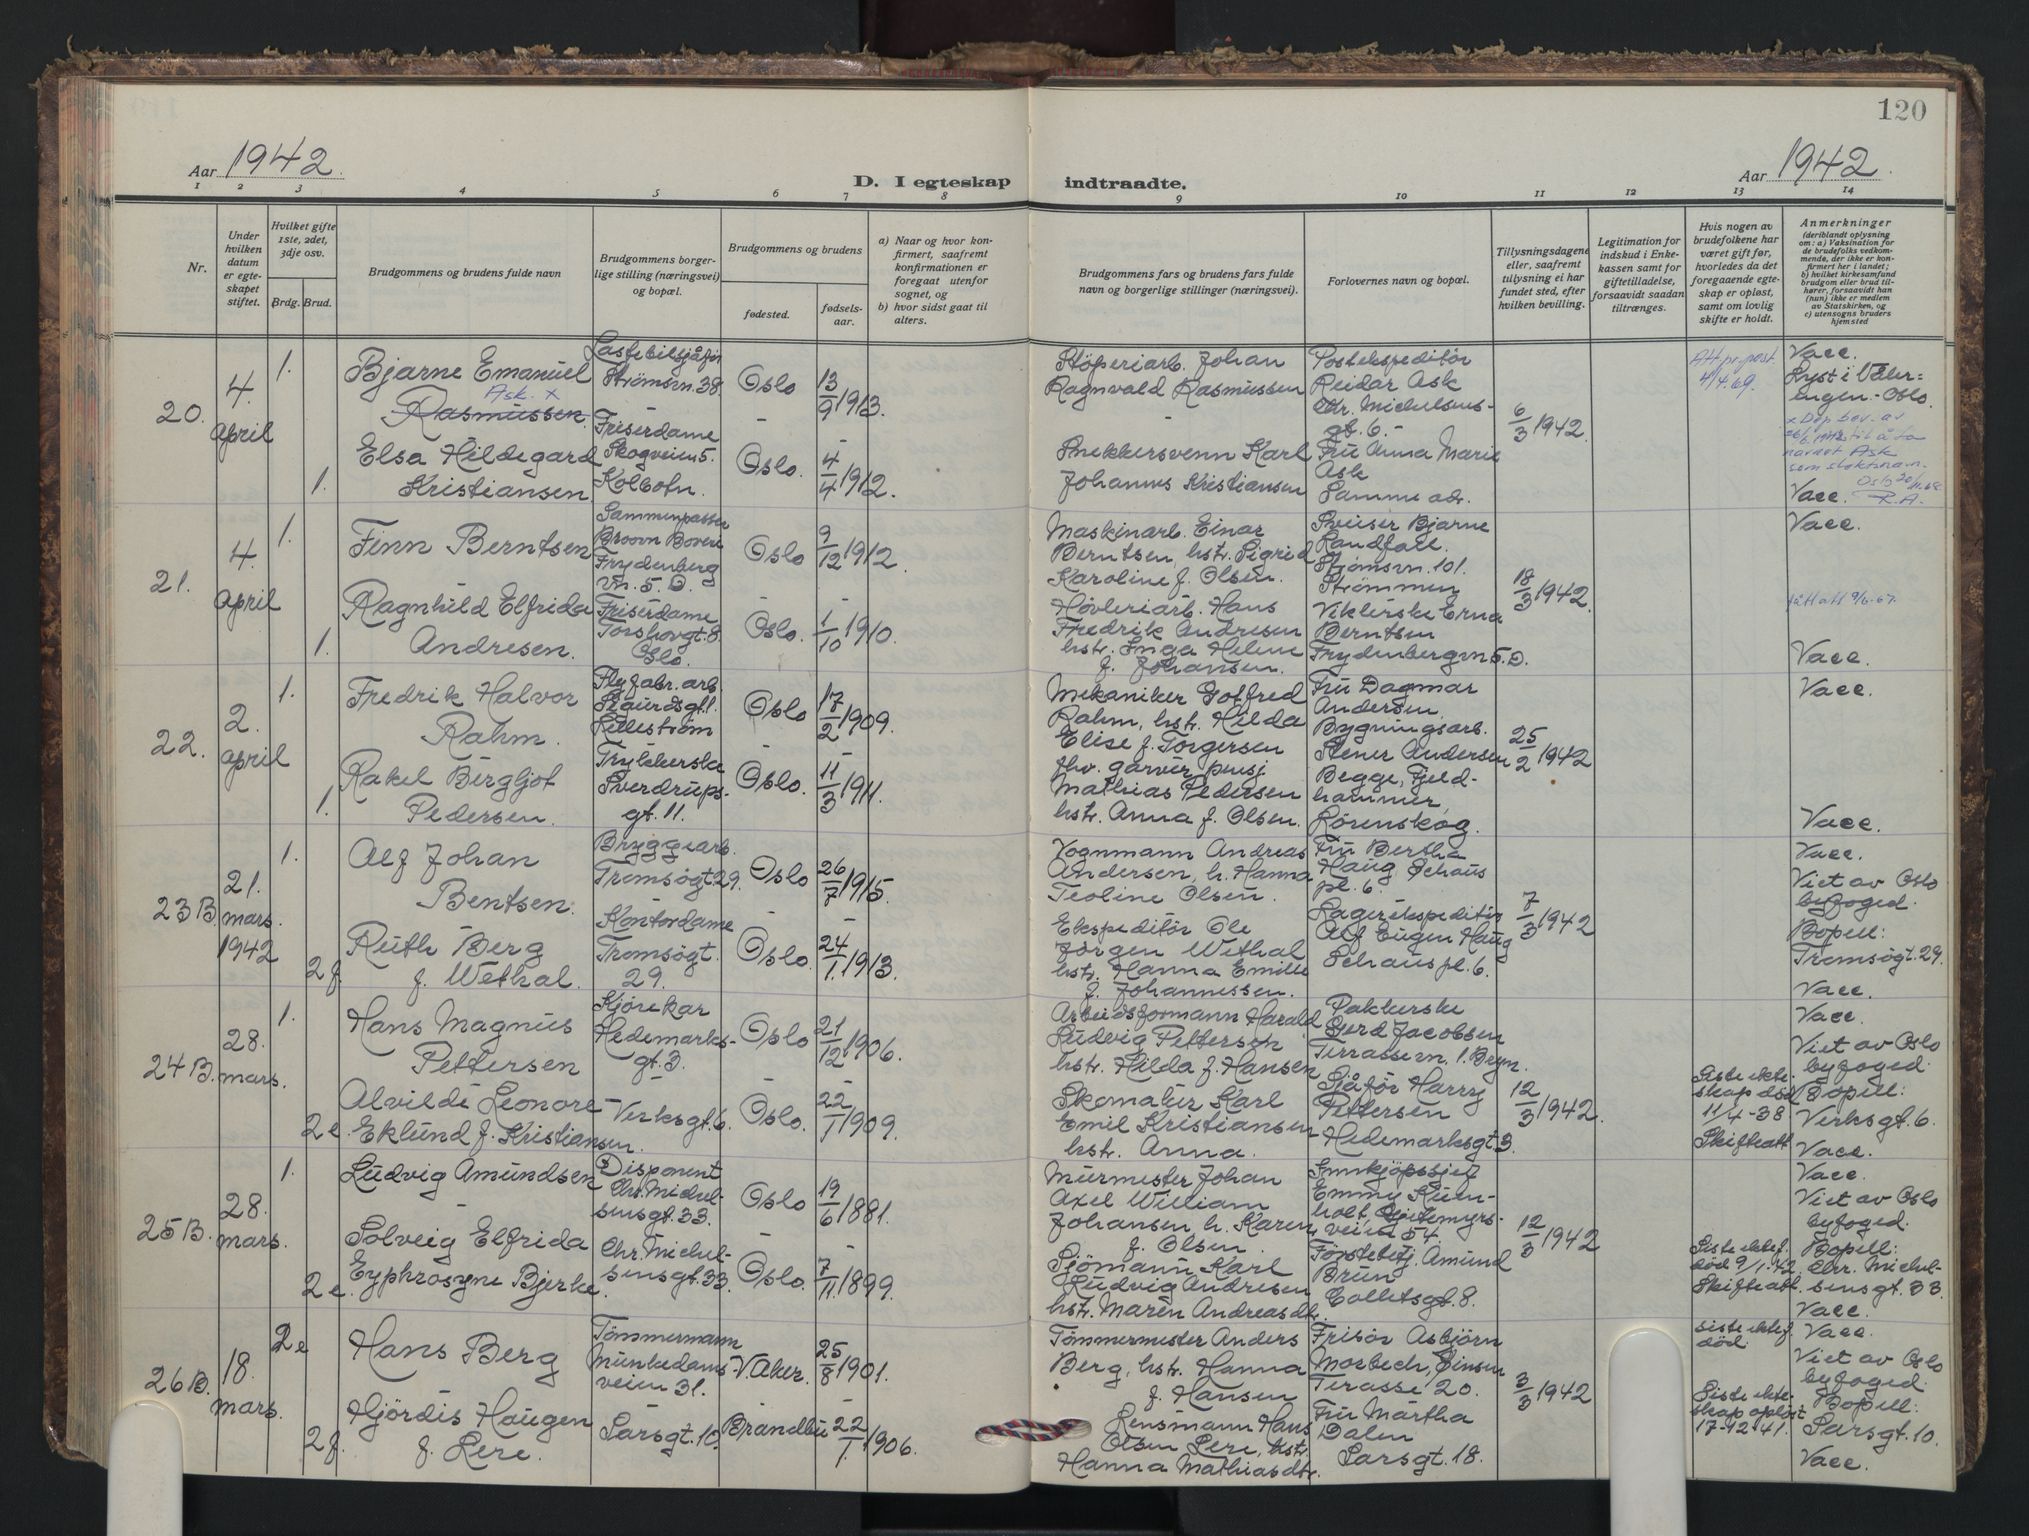 120
Aar 1942.
D. I egteskap indtraadte.
Aar 1942.
1 2 3 4 5 6 7 8 9 10 11 12 13 14
Nr.
Under
hvilken
datum
er egte-
skapet
stiftet.
Hvilket gifte
1ste, 2det,
3dje osv.
Brdg. Brud.
Brudgommens og brudens fulde navn
Brudgommens borger-
lige stilling (næringsvei)
og bopæl.
Brudgommens og brudens
fødested.
fødsels-
aar.
a) Naar og hvor kon-
firmert, saafremt
konfirmationen er
foregaat utenfor
sognet, og
b) hvor sidst gaat til
alters.
Brudgommens fars og brudens fars fulde
navn og borgerlige stillinger (næringsvei).
Forlovernes navn og bopæl.
Tillysningsdagene
eller, saafremt
tillysning ei har
fundet sted, efter
hvilken bevilling.
Legitimation for
indskud i Enke-
kassen samt for
giftetilladelse,
forsaavidt saadan
tiltrænges.
Hvis nogen av
brudefolkene har
været gift før,
hvorledes da det
foregaaende egte-
skap er opløst,
samt om lovlig
skifte er holdt.
Anmerkninger
(deriblandt oplysning
om: a) Vaksination for
de brudefolks vedkom-
mende, der ikke er kon-
firmert her i landet;
b) hvilket kirkesamfund
brudgom eller brud til-
hører, forsaavidt han
(hun) ikke er medlem
av Statskirken, og
c) utensogns bruders
hjemsted
20.
4.
april
1.
Bjarne Emanuel
Ask. x
Rasmussen
Lastebilsjåfør
Strømsvn. 38.
Oslo
13/9 1913.
Elsa Hildegard
1. Kristiansen
Friserdame
Skogveien 5.
Kolbotn.
Oslo.
4/4 1912.
Støperiarb. Johan
Ragnvald Rasmussen
Snekkersvenn Karl
Johannes Kristiansen
Postekspeditør
Reidar Ask
Chr. Michelsens-
gt. 6.-
Fru Anna Marie
Ask
Samme adr.
6/3 1942.
Att pr. post.
4/4.69.
Vacc.
Lyst i Våler-
engen - Oslo.
navnet Ask
som slektsnavn.
Vacc. R.A.
21.
4.
april
1.
Finn Berntsen
Sammenpasser
Brown Boveri
Frydenberg
vn. 5. D.
Oslo
9/12 1912.
Ragnhild Elfrida
1. Andresen.
Friserdame
Torshovgt. 8
Oslo.
Oslo.
1/10 1910.
Maskinarb. Einar
Berntsen hstr. Sigrid
Karoline f. Olsen.
Høvleriarb. Hans
Fredrik Andresen
hstr. Inga Helene
f. Johansen.
Sveiser Bjarne
Landfall.
Strømsvn. 101.
Strømmen
Viklerske Erna
Berntsen
Frydenbergvn 5. D.
18/3 1942.
Vacc.
Vacc.
22.
2.
april
1.
Fredrik Halvor
Rahm.
Flyfabr. arb.
Sigurdsgt. 1.
Lillestrøm
Oslo
17/2 1909.
Rakel Bergljot
1. Pedersen.
Trykkerske
Sverdrups-
gt. 11.
Oslo.
11/3 1911.
Mekaniker Gotfred
Rahm, hstr. Hilda
Elise f. Torgersen
fhv. garver, pensj.
Mathias Pedersen
hstr. Anna f. Olsen.
Fru Dagmar
Andersen.
Bygningsarb.
Stener Andersen
Begge, Fjeld-
hammer,
Lørenskog.
25/2 1942
Vacc.
Vacc.
23 B.
21.
mars.
1942
1.
Alf Johan
Bentsen.
Bryggearb.
Tromsøgt. 29.
Oslo
26/7 1915.
Ruth Berg
2 f. f. Wethal.
Kontordame
Tromsøgt.
29.
Oslo.
24/1. 1913.
Vognmann Andreas
Andersen, h. Hanna
Teoline Olsen.
Ekspeditør Ole
Jørgen Wethal
hstr. Hanna Emilie
f. Johannessen.
Fru Bertha
Haug Schous
pl. 6.
Lagerekspeditør
Alf Eugen Haug
Schous pl. 6.
7/3 1942
Vacc.
Viet av Oslo
byfoged.
Bopell:
Tromsøgt. 29.
Vacc.
24 B.
28.
mars.
1.
Hans Magnus
Pettersen
Kjørekar
Hedemarks-
gt. 3.
Oslo
21/12 1906.
Alvilde Leonore
2 e. Eklund f. Kristiansen.
Verksgt. 6.
Oslo.
22/1 1909.
Arbeidsformann Harald
Ludvig Pettersen
hstr. Hilda f. Hansen
Skomaker Karl
Emil Kristiansen
hstr. Anna.
Pakkerske
Gerd Jacobsen
Terrassevn. 1. Bryn.
Sjåfør Harry
Pettersen
Hedemarksgt. 3.
12/3 1942.
Siste ekte-
skap død
11/4-38
Skifteatt.
Vacc.
Viet av Oslo
byfoged.
Bopell:
Verksgt. 6.
Vacc.
25 B.
28.
mars.
1.
Ludvig Amundsen
Disponent
Chr. Michel-
sensgt. 33.
Oslo
19/6 1881.
Solveig Elfrida
2 e. Eyphrosyne Bjerke.
Chr. Michel-
sensgt. 33.
Oslo.
7/11. 1899.
Murmester Johan
Axel William
Johansen h. Karen
f. Olsen
Sjømann Karl
Ludvig Andresen
hstr. Maren Andreasdtr.
Innkjøpssjef
Emmy Kuen-
holt, Geitemyrs-
veien 54.
Førstebetj. Amund
Brun
Colletsgt. 8.
12/3 1942
Siste ektef.
død 9/1.42.
Skifteatt.
Vacc.
Viet av Oslo
byfoged.
Bopell:
Chr. Michel-
sensgt. 33.
Vacc.
26 B.
18.
mars.
2 e
Hans Berg
Tømmermann
Munkedams-
veien 31.
V. Aker.
25/8 1901.
Hjördis Haugen
2 f. f. Lere.
Sarsgt. 10.
Brandbu
22/1. 1906.
Tømmermester Anders
Berg, hstr. Hanna
f. Hansen
Lensmann Hans
Olsen Lere, hstr.
Hanna Mathiasdtr.
Frisør Asbjørn
Morbech, Sinsen
Terasse 20.
Fru Martha
Dalen
Sarsgt. 18.
3/3 1942
Siste ektef.
død.
Siste ekte-
skap opløst
17-12-41.
Vacc.
Viet av Oslo
byfoged.
Bopell:
Sarsgt. 10.
Vacc.